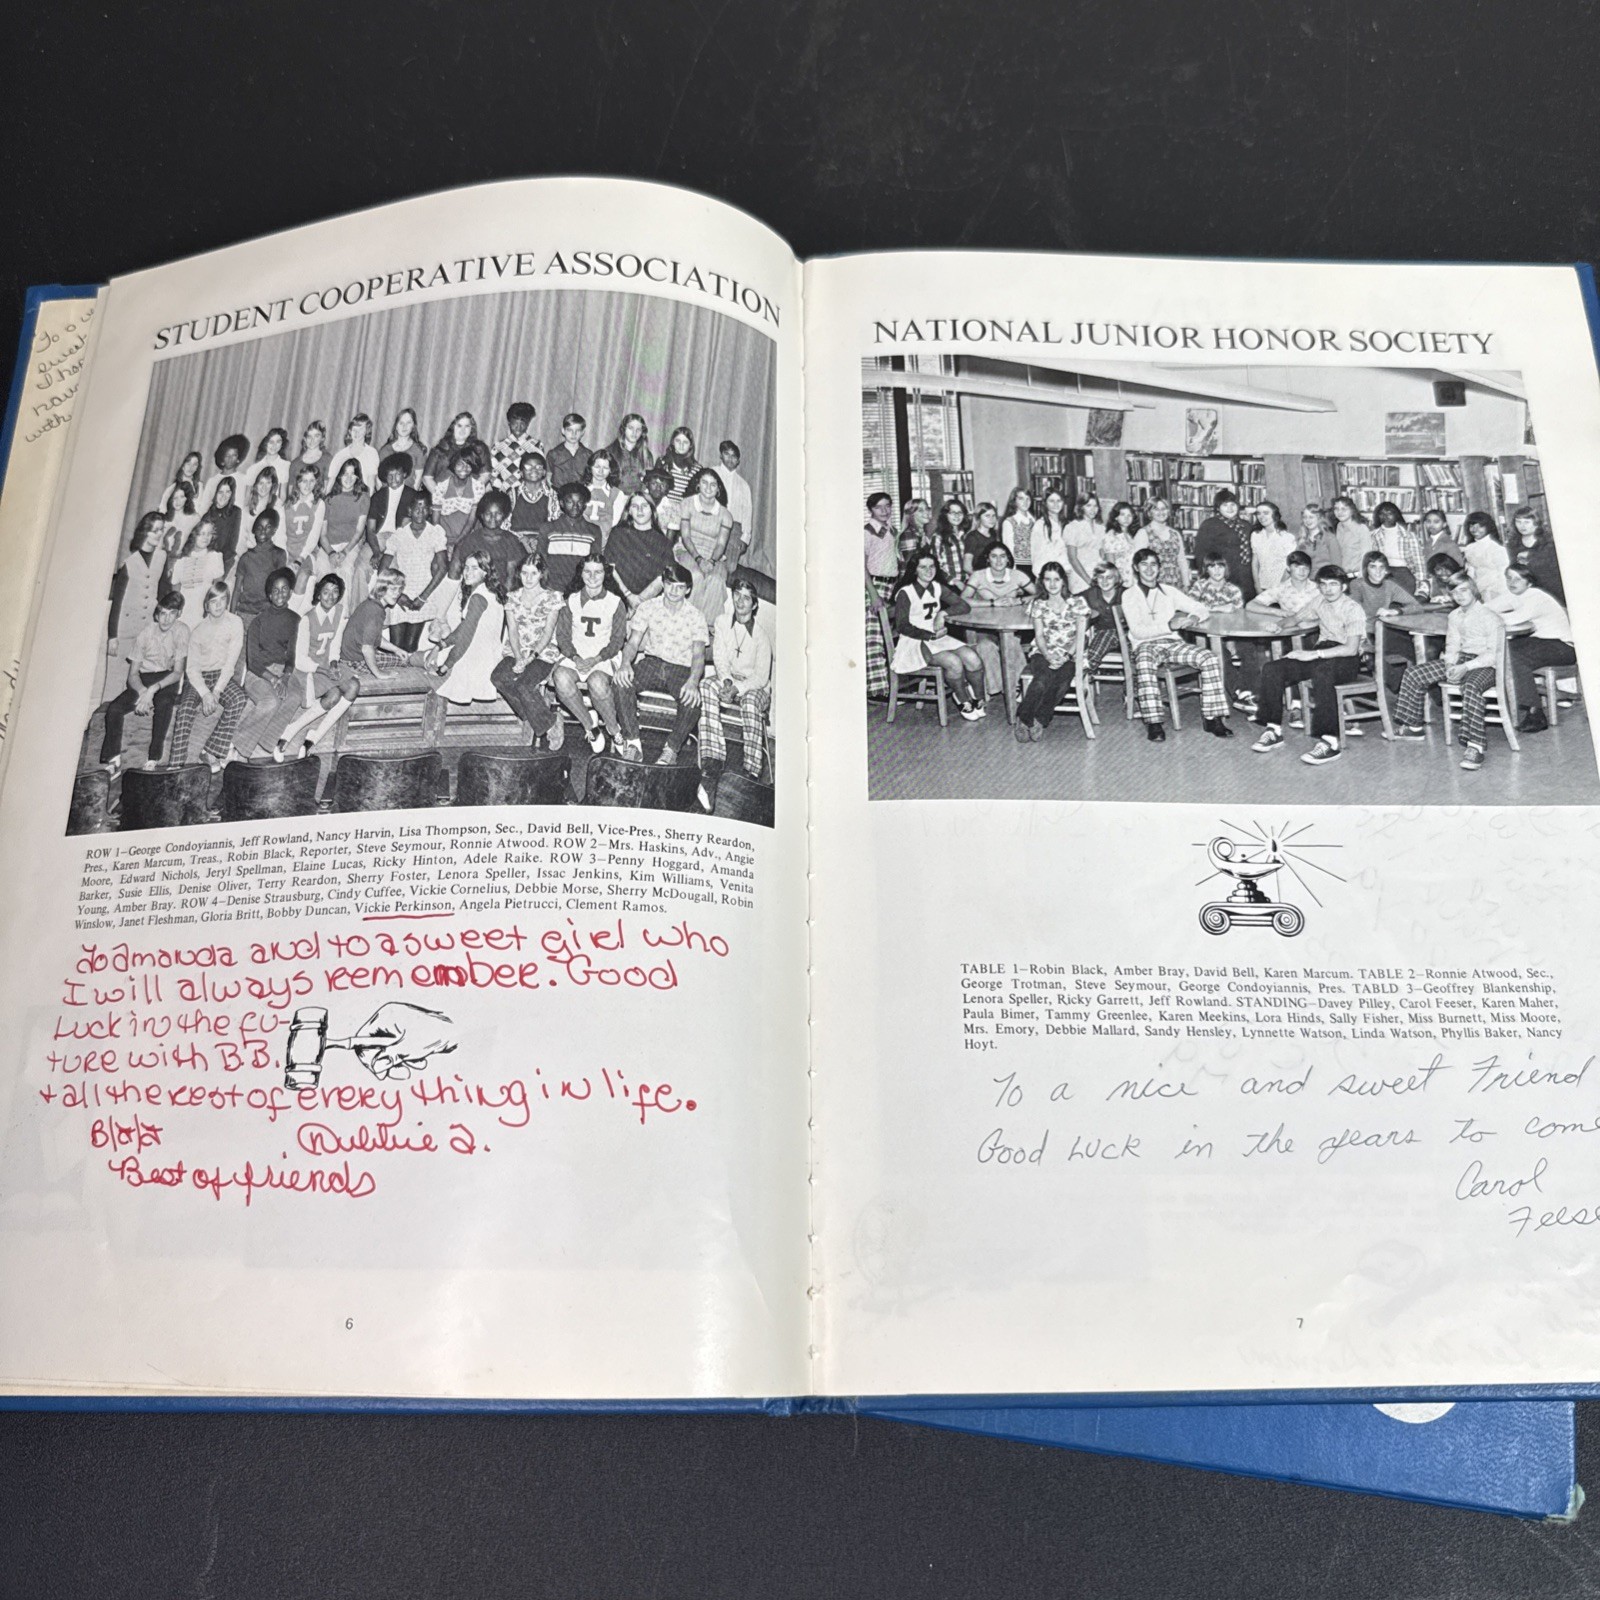 To a
sweet
I hop
nav
with
STUDENT COOPERATIVE ASSOCIATION
T
T
T
T
ROW 1—George Condoyiannis, Jeff Rowland, Nancy Harvin, Lisa Thompson, Sec., David Bell, Vice-Pres., Sherry Reardon,
Pres., Karen Marcum, Treas., Robin Black, Reporter, Steve Seymour, Ronnie Atwood. ROW 2—Mrs. Haskins, Adv., Angie
Moore, Edward Nichols, Jeryl Spellman, Elaine Lucas, Ricky Hinton, Adele Raike. ROW 3—Penny Hoggard, Amanda
Barker, Susie Ellis, Denise Oliver, Terry Reardon, Sherry Foster, Lenora Speller, Issac Jenkins, Kim Williams, Venita
Young, Amber Bray. ROW 4—Denise Strausburg, Cindy Cuffee, Vickie Cornelius, Debbie Morse, Sherry McDougall, Robin
Winslow, Janet Fleshman, Gloria Britt, Bobby Duncan, Vickie Perkinson, Angela Pietrucci, Clement Ramos.
To Amanda and to a sweet girl who
I will always remember. Good
Luck in the fu-
ture with B.B.
+ all the rest of every thing in life.
Best of friends
6
NATIONAL JUNIOR HONOR SOCIETY
T
TABLE 1—Robin Black, Amber Bray, David Bell, Karen Marcum. TABLE 2—Ronnie Atwood, Sec.,
George Trotman, Steve Seymour, George Condoyiannis, Pres. TABLD 3—Geoffrey Blankenship,
Lenora Speller, Ricky Garrett, Jeff Rowland. STANDING—Davey Pilley, Carol Feeser, Karen Maher,
Paula Bimer, Tammy Greenlee, Karen Meekins, Lora Hinds, Sally Fisher, Miss Burnett, Miss Moore,
Mrs. Emory, Debbie Mallard, Sandy Hensley, Lynnette Watson, Linda Watson, Phyllis Baker, Nancy
Hoyt.
To a nice and sweet Friend
Good Luck in the years to come
Carol
Feese
7